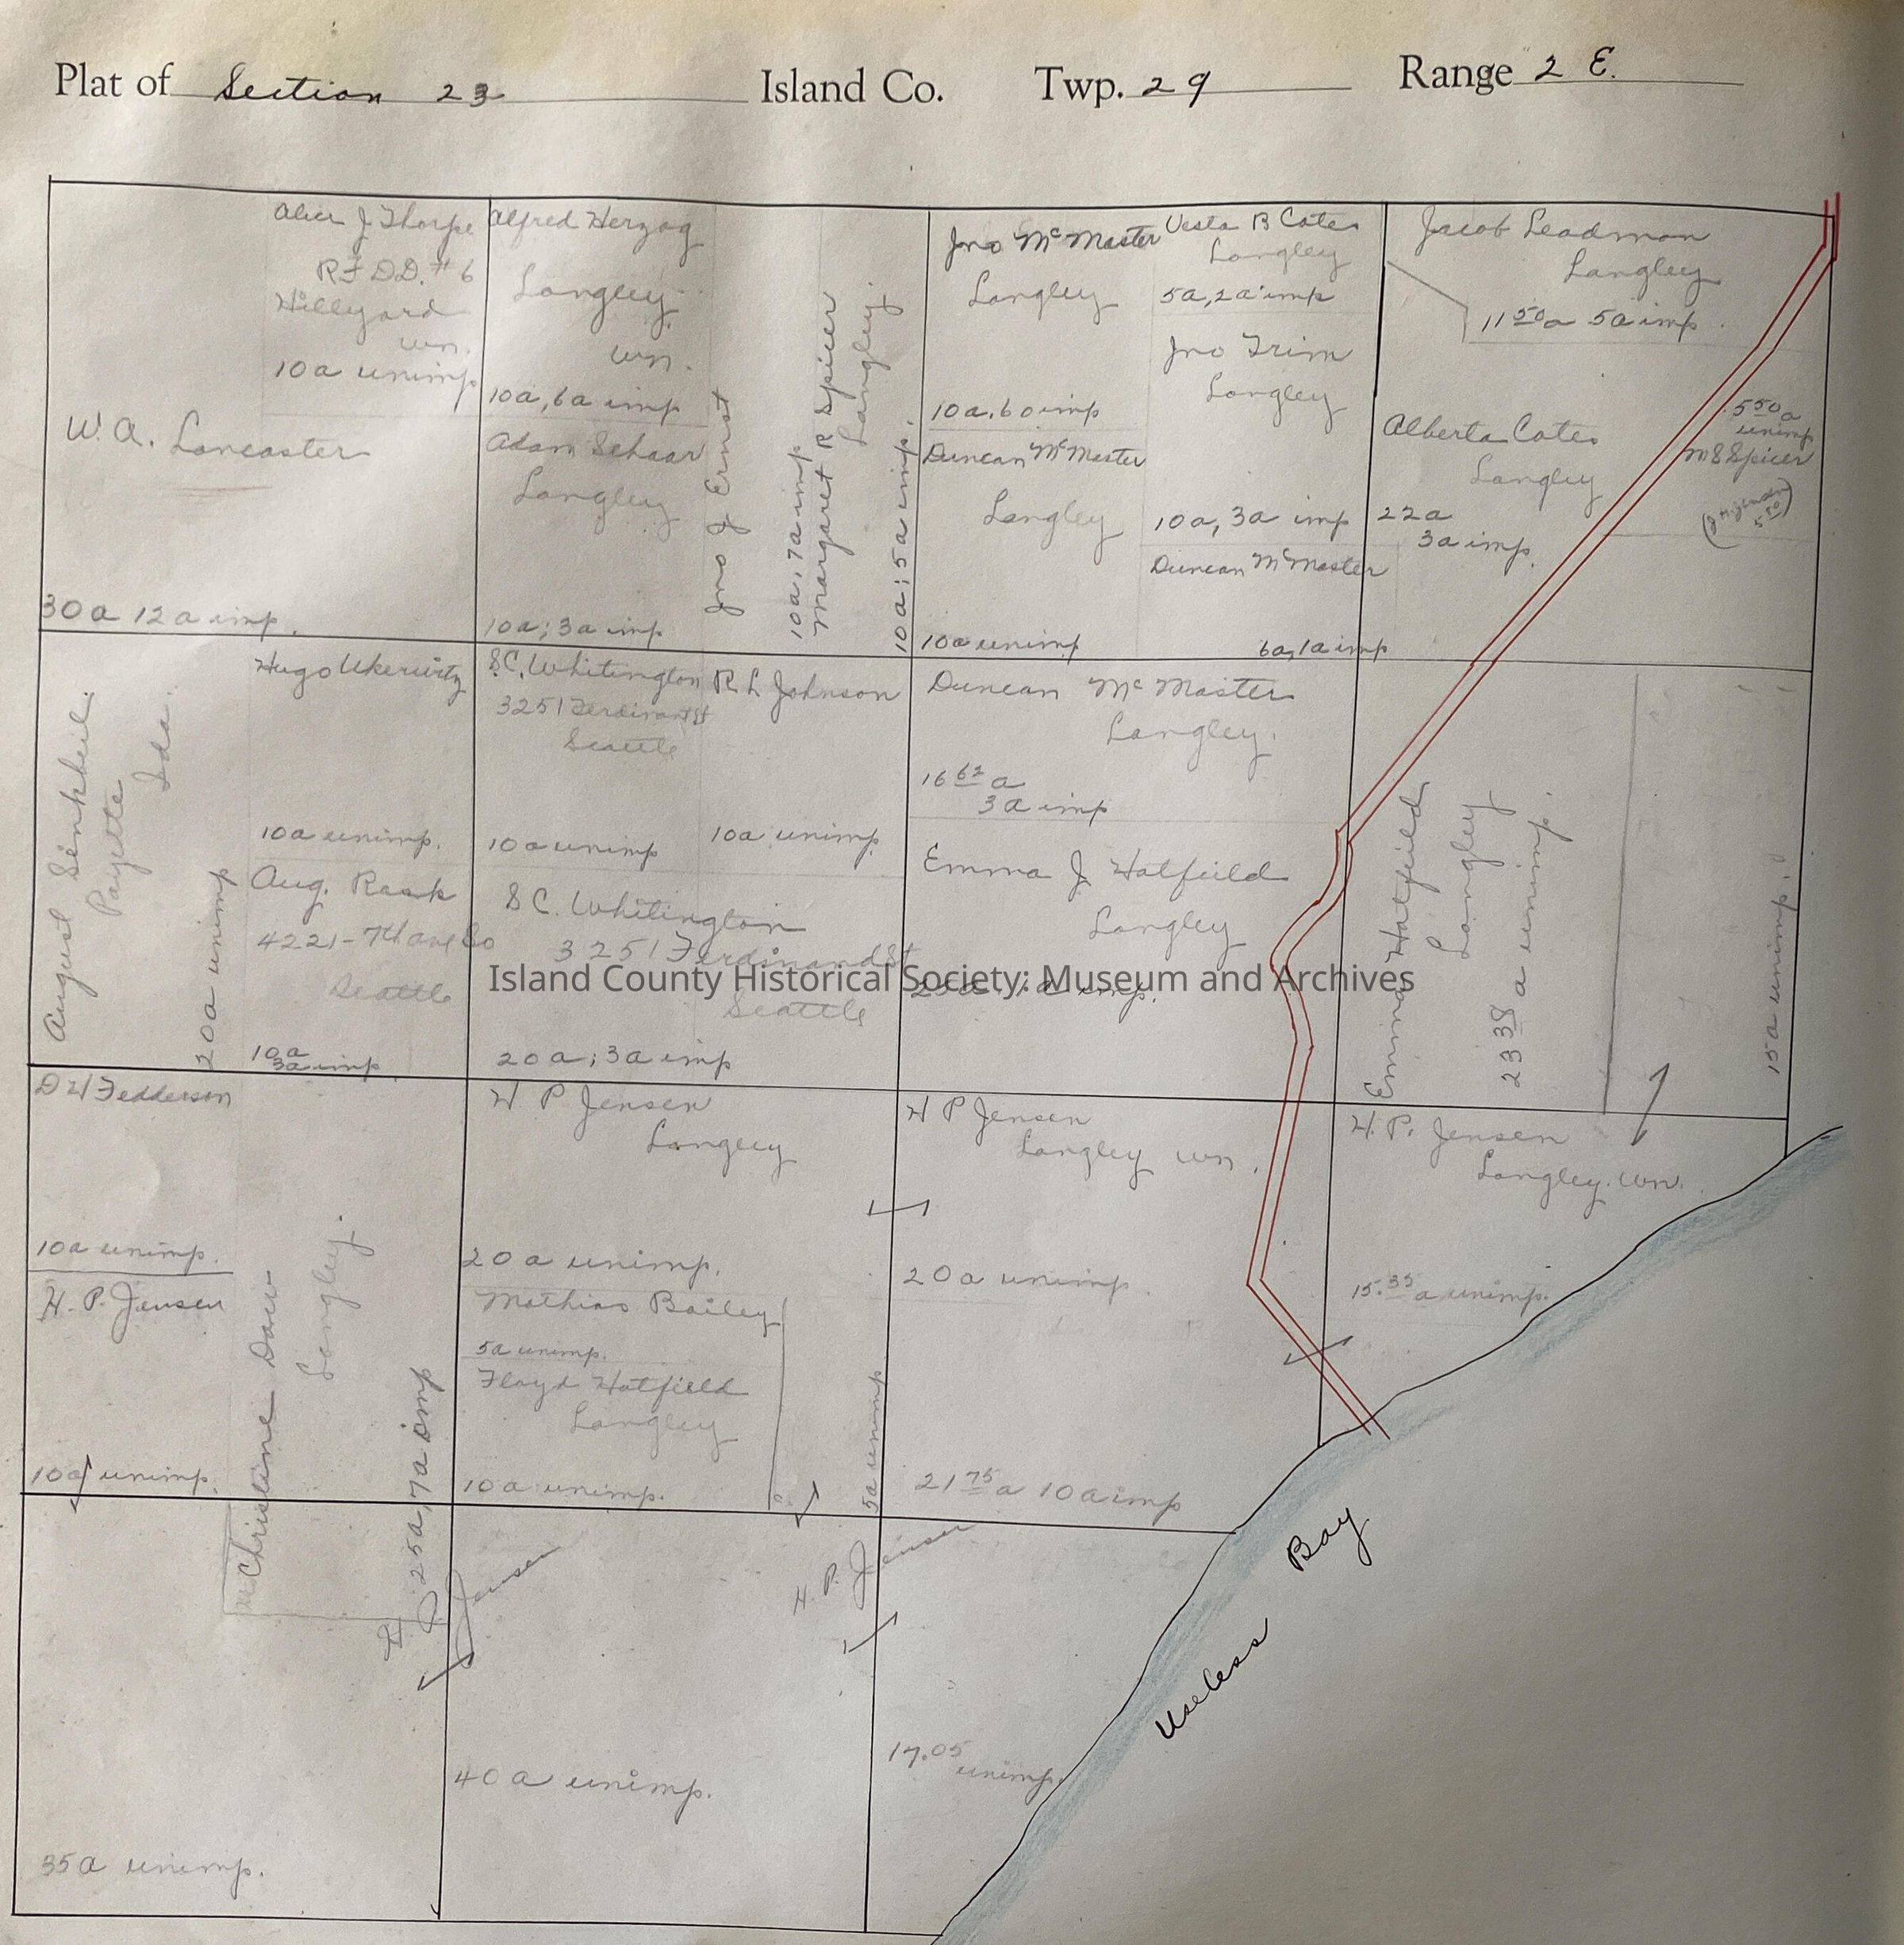 Plat of Section 23 Island Co. Twp. 29 Range 2 E.
Alice J Thorpe
R F D D. # 6
Hillyard
wn.
10a unimp
W. A. Lancaster
30a 12a imp.
Alfred Herzog
Langley
wn.
10a, 6a imp
Adam Schaar
Langley
10a; 3a imp
Jno J Ernst
10a, 7a imp
Margaret R Spicer
Langley.
10a; 5a imp.
Jno McMaster
Langley
10a, 6a imp
Duncan McMaster
Langley
10a unimp
Vesta B Cates
Langley
5a, 2a imp
Jno Trim
Langley
10a, 3a imp
Duncan McMaster
6a, 1a imp
Jacob Leadman
Langley
11 50 a 5a imp.
Alberta Cates
Langley
22a
3a imp.
5 50 a
unimp
M S Spicer
August Senkheil.
Payette
Ida.
20a unimp
Hugo
10a unimp.
Aug. Rask
4221-7th ave So
Seattle
10a
3a imp.
S.C. Whitington
3251 Ferdinand St
Seattle
10a unimp
R L Johnson
10a unimp.
S C. Whitington
3251 Ferdinand St
Seattle
20a; 3a imp
Duncan McMaster
Langley.
16 62 a
3a imp
Emma J Hatfield
Langley
imp.
Emma Hatfield
Langley
23 38 a unimp.
15a unimp.
Island County Historical Society: Museum and Archives
D H Fedderson
10a unimp.
H. P. Jensen
10a unimp.
Christine Daw
Langley.
25a, 7a imp
H P Jensen
Langley
20a unimp.
Mathias Bailey
5a unimp.
Floyd Hatfield
Langley
10a unimp.
5a unimp
H P Jensen
Langley wn.
20a unimp.
21 75 a 10a imp
H. P. Jensen
Langley. Wn.
15. 35 a unimp.
H P Jensen
H. P. Jensen
35a unimp.
40a unimp.
17.05
unimp.
Useless Bay